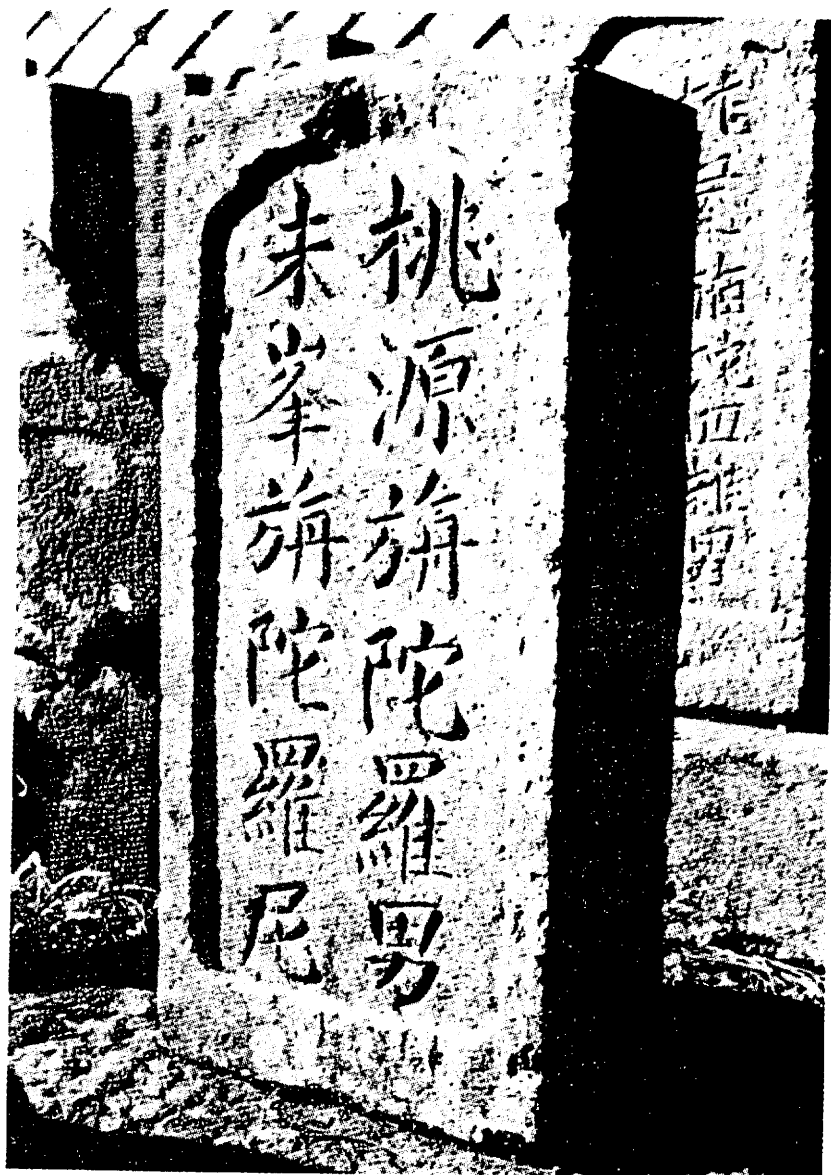 桃源旃陀羅男
朱峯旃陀羅尼